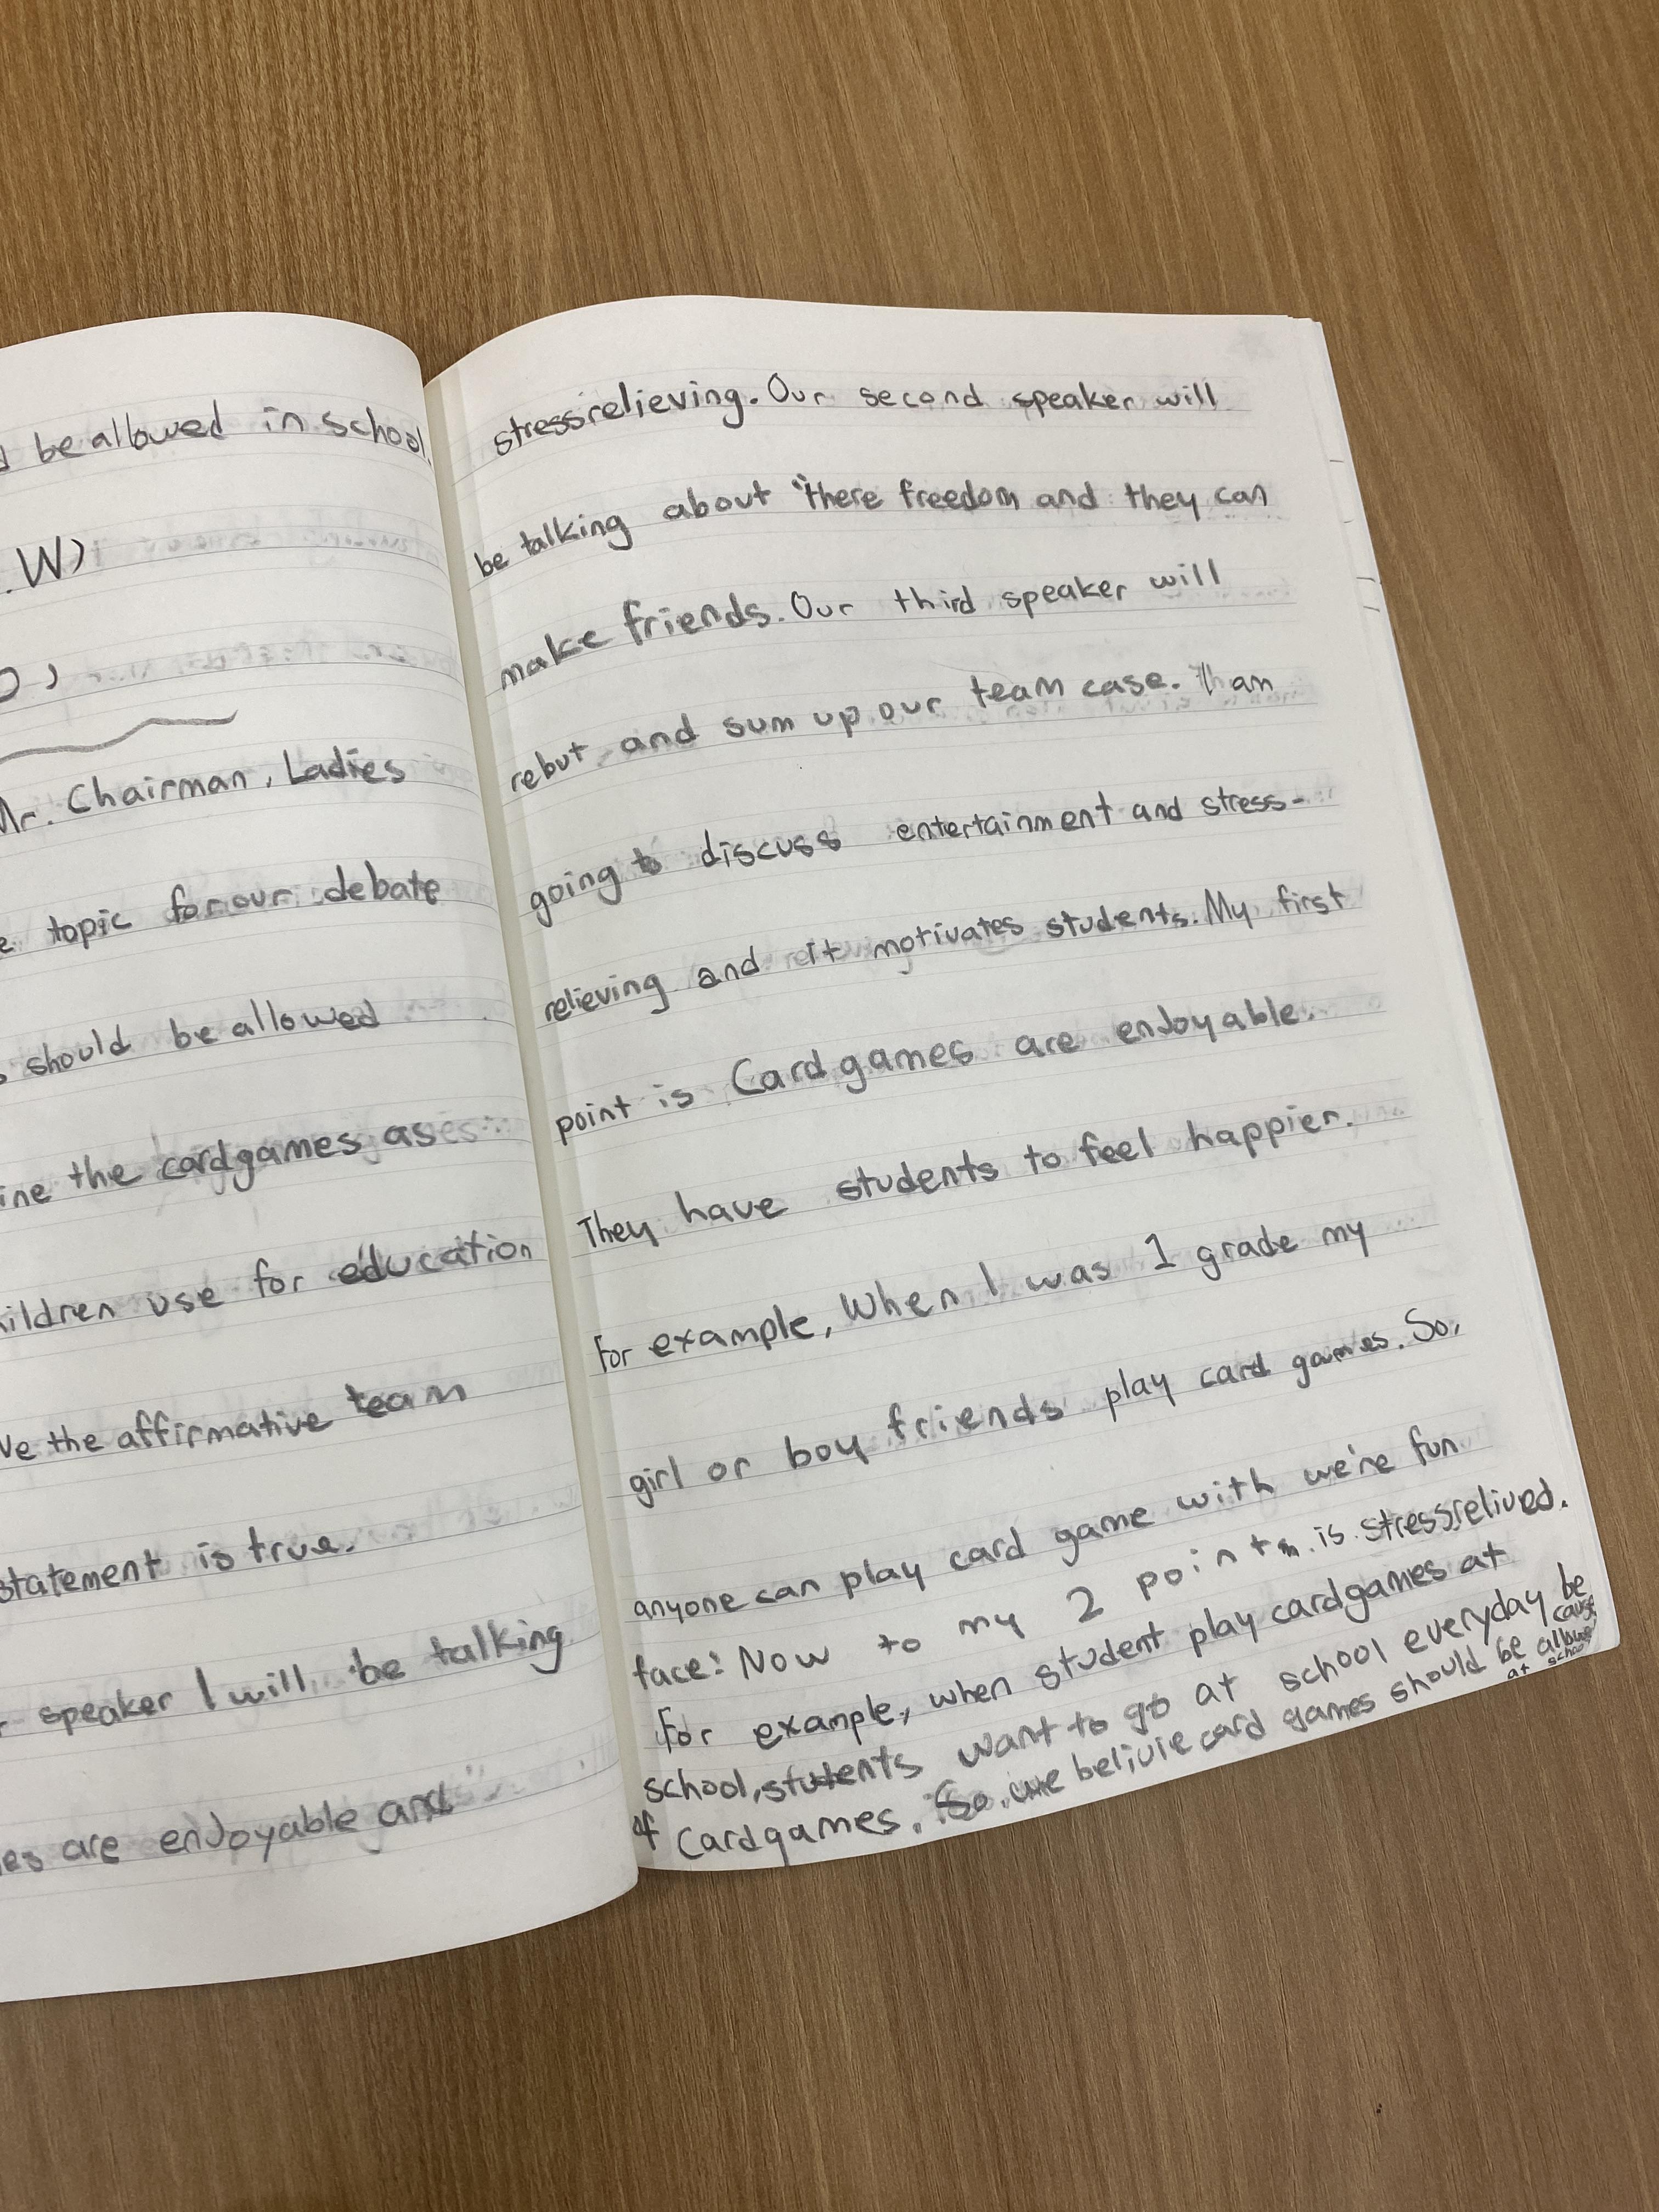 be allowed in school.
W)
Mr. Chairman, Ladies
topic for our debate
should be allowed
the cardgames as
use for education
the affirmative team
statement is true.
speaker I will be talking
are enJoyable and
stressrelieving. Our second speaker will
be talking about there freedom and they can
make friends. Our third speaker will
rebut and sum up our team case. an
going to discuss entertainment and stress-
relieving and it motivates students. My first
point is Cardgames are enJoyable.
They have students to feel happier.
For example, When I was 1 grade my
girl or boy friends play card games. So,
anyone can play card game with we're fun
face! Now to my 2 point is stressrelived.
For example, when student play cardgames at
school, students want to go at school everyday be
cause
of Cardgames. So we belivie card games should be allowe
at school